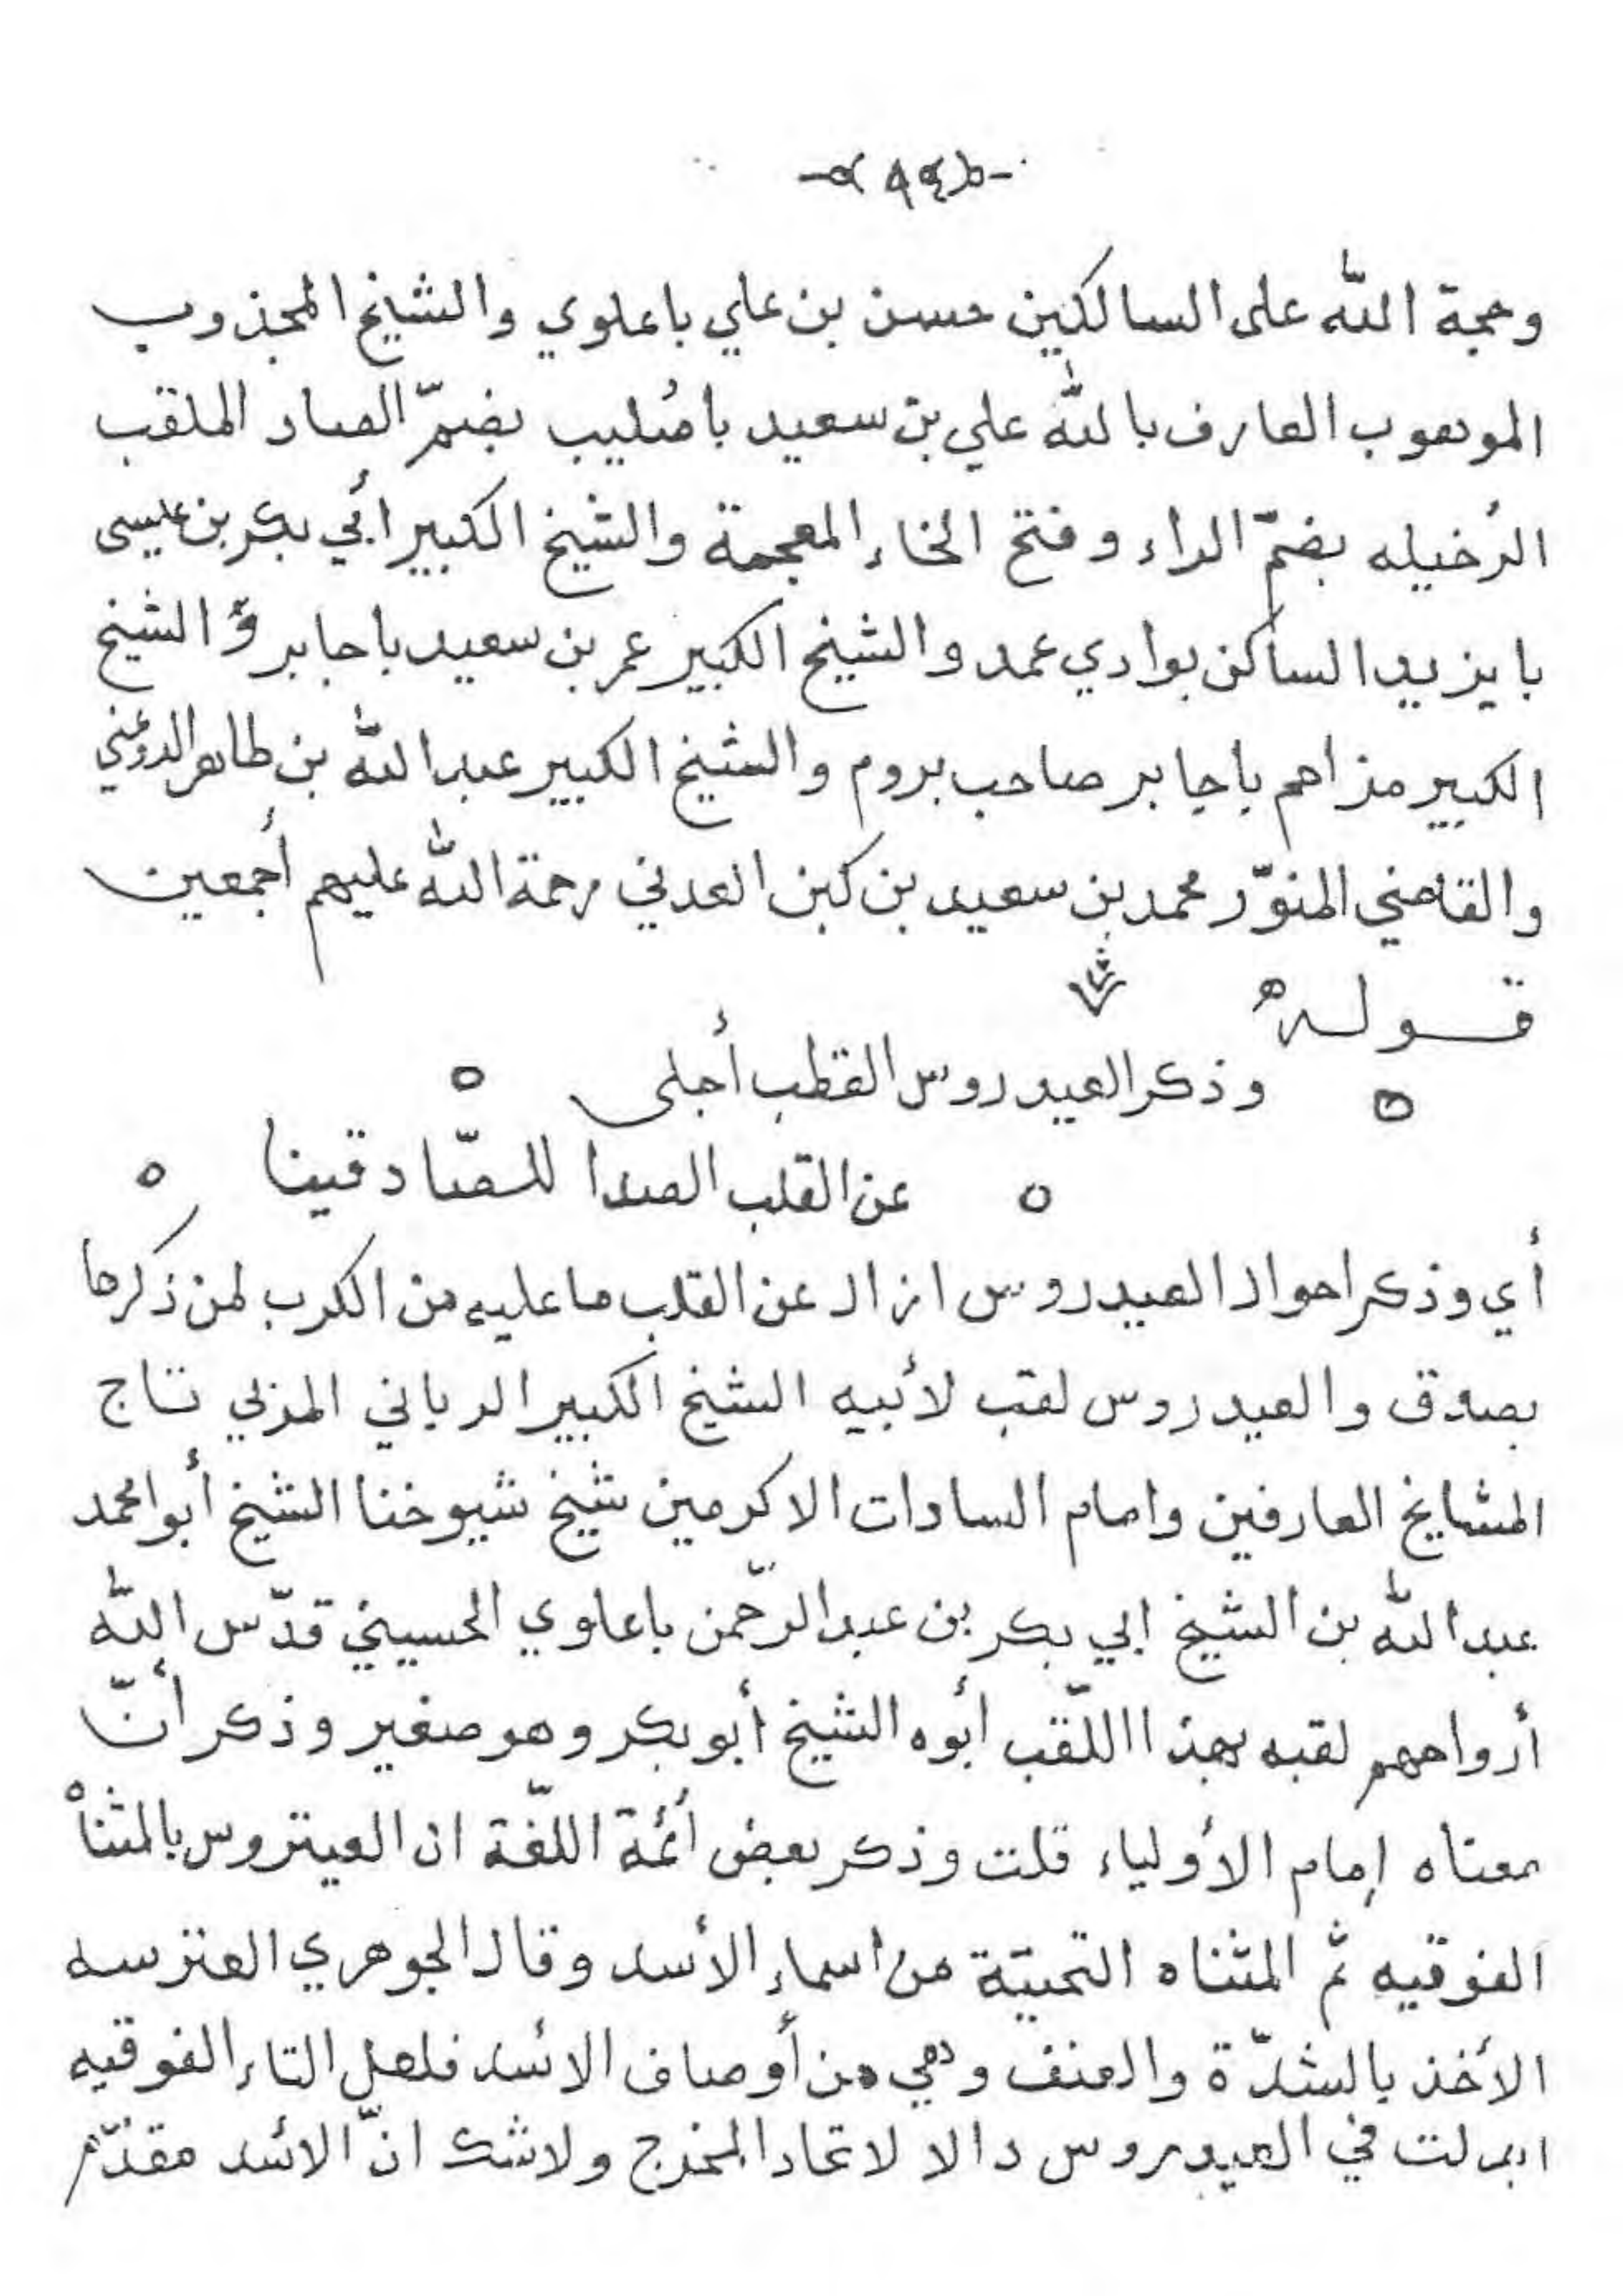 -( ٩٤ )-
وحجة الله على السالكين حسن بن علي باعلوي والشيخ المجذوب
الموهوب العارف بالله علي بن سعيد باصُليب بضمّ الصاد الملقب
الرُخيله بضمّ الراء وفتح الخاء المعجمة والشيخ الكبير أبي بكر بن عيسى
بايزيد الساكن بوادي عمد والشيخ الكبير عمر بن سعيد باجابر والشيخ
الكبير مزاحم باجابر صاحب بروم والشيخ الكبير عبد الله بن طاهر الدوعني
والقاضي المنوّر محمد بن سعيد بن كبن العدني رحمة الله عليهم أجمعين
قوله
وذكر العيدروس القطب أجلى
عن القلب الصدا للصّادقينا
أي وذكر احوال العيدروس ازال عن القلب ما عليه من الكرب لمن ذكرها
بصدق والعيدروس لقب لأبيه الشيخ الكبير الرباني المزبي تاج
المشايخ العارفين وامام السادات الاكرمين شيخ شيوخنا الشيخ أبو محمد
عبد الله بن الشيخ ابي بكر بن عبد الرّحمن باعلوي الحسيني قدّس الله
أرواحهم لقبه بهذا اللّقب أبوه الشيخ أبو بكر وهو صغير وذكر أنّ
معناه إمام الأولياء قلت وذكر بعض أئمة اللّغة ان العيتروس بالمثناْه
الفوقيه ثم المثناه التحتيّة من اسماء الأسد وقال الجوهري العترسه
الأخذ بالشدّة والعنف وهي من أوصاف الائسد فلعل التاء الفوقيه
ابدلت في العيدروس دالا لاتحاد المخرج ولاشك انّ الائسد مقدّم